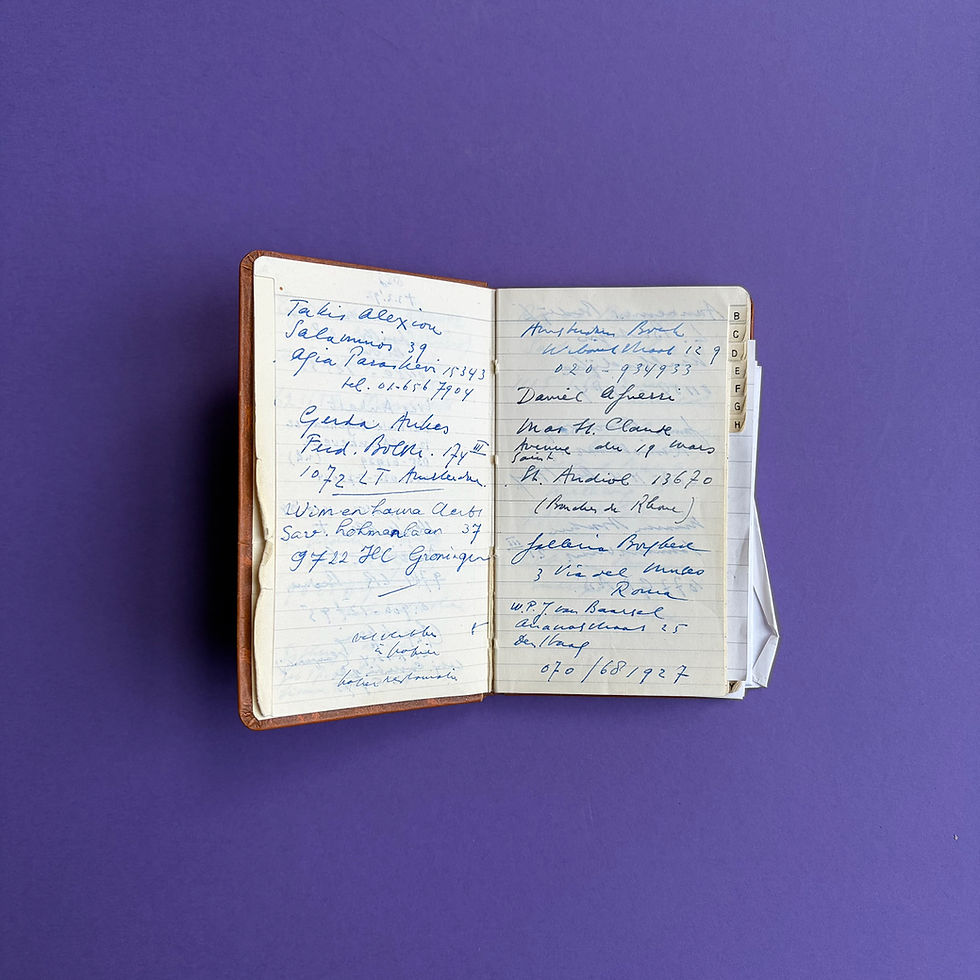 Takis Alexiou
Salaminos 39
Agia Paraskevi 15343
tel. 01-656 7904
Gerda Ankes
Ferd. Bolstr. 174 III
1072 LT Amsterdam.
Wim en Louwa Aerts
Sav. Lohmanlaan 37
9722 HC Groningen
à papier
papier restauratie
Amsterdam Boek
Wibautstraat 129
020-934933
Daniel
Mas St. Claude
Avenue du 19 Mars
Saint
St. Andiol 13670
(Bouches du Rhone)
Galleria Borghese
3 Via del
Roma
W.P.J. van Baarsel
Ananasstraat 25
Den Haag
070/681927
B
C
D
E
F
G
H